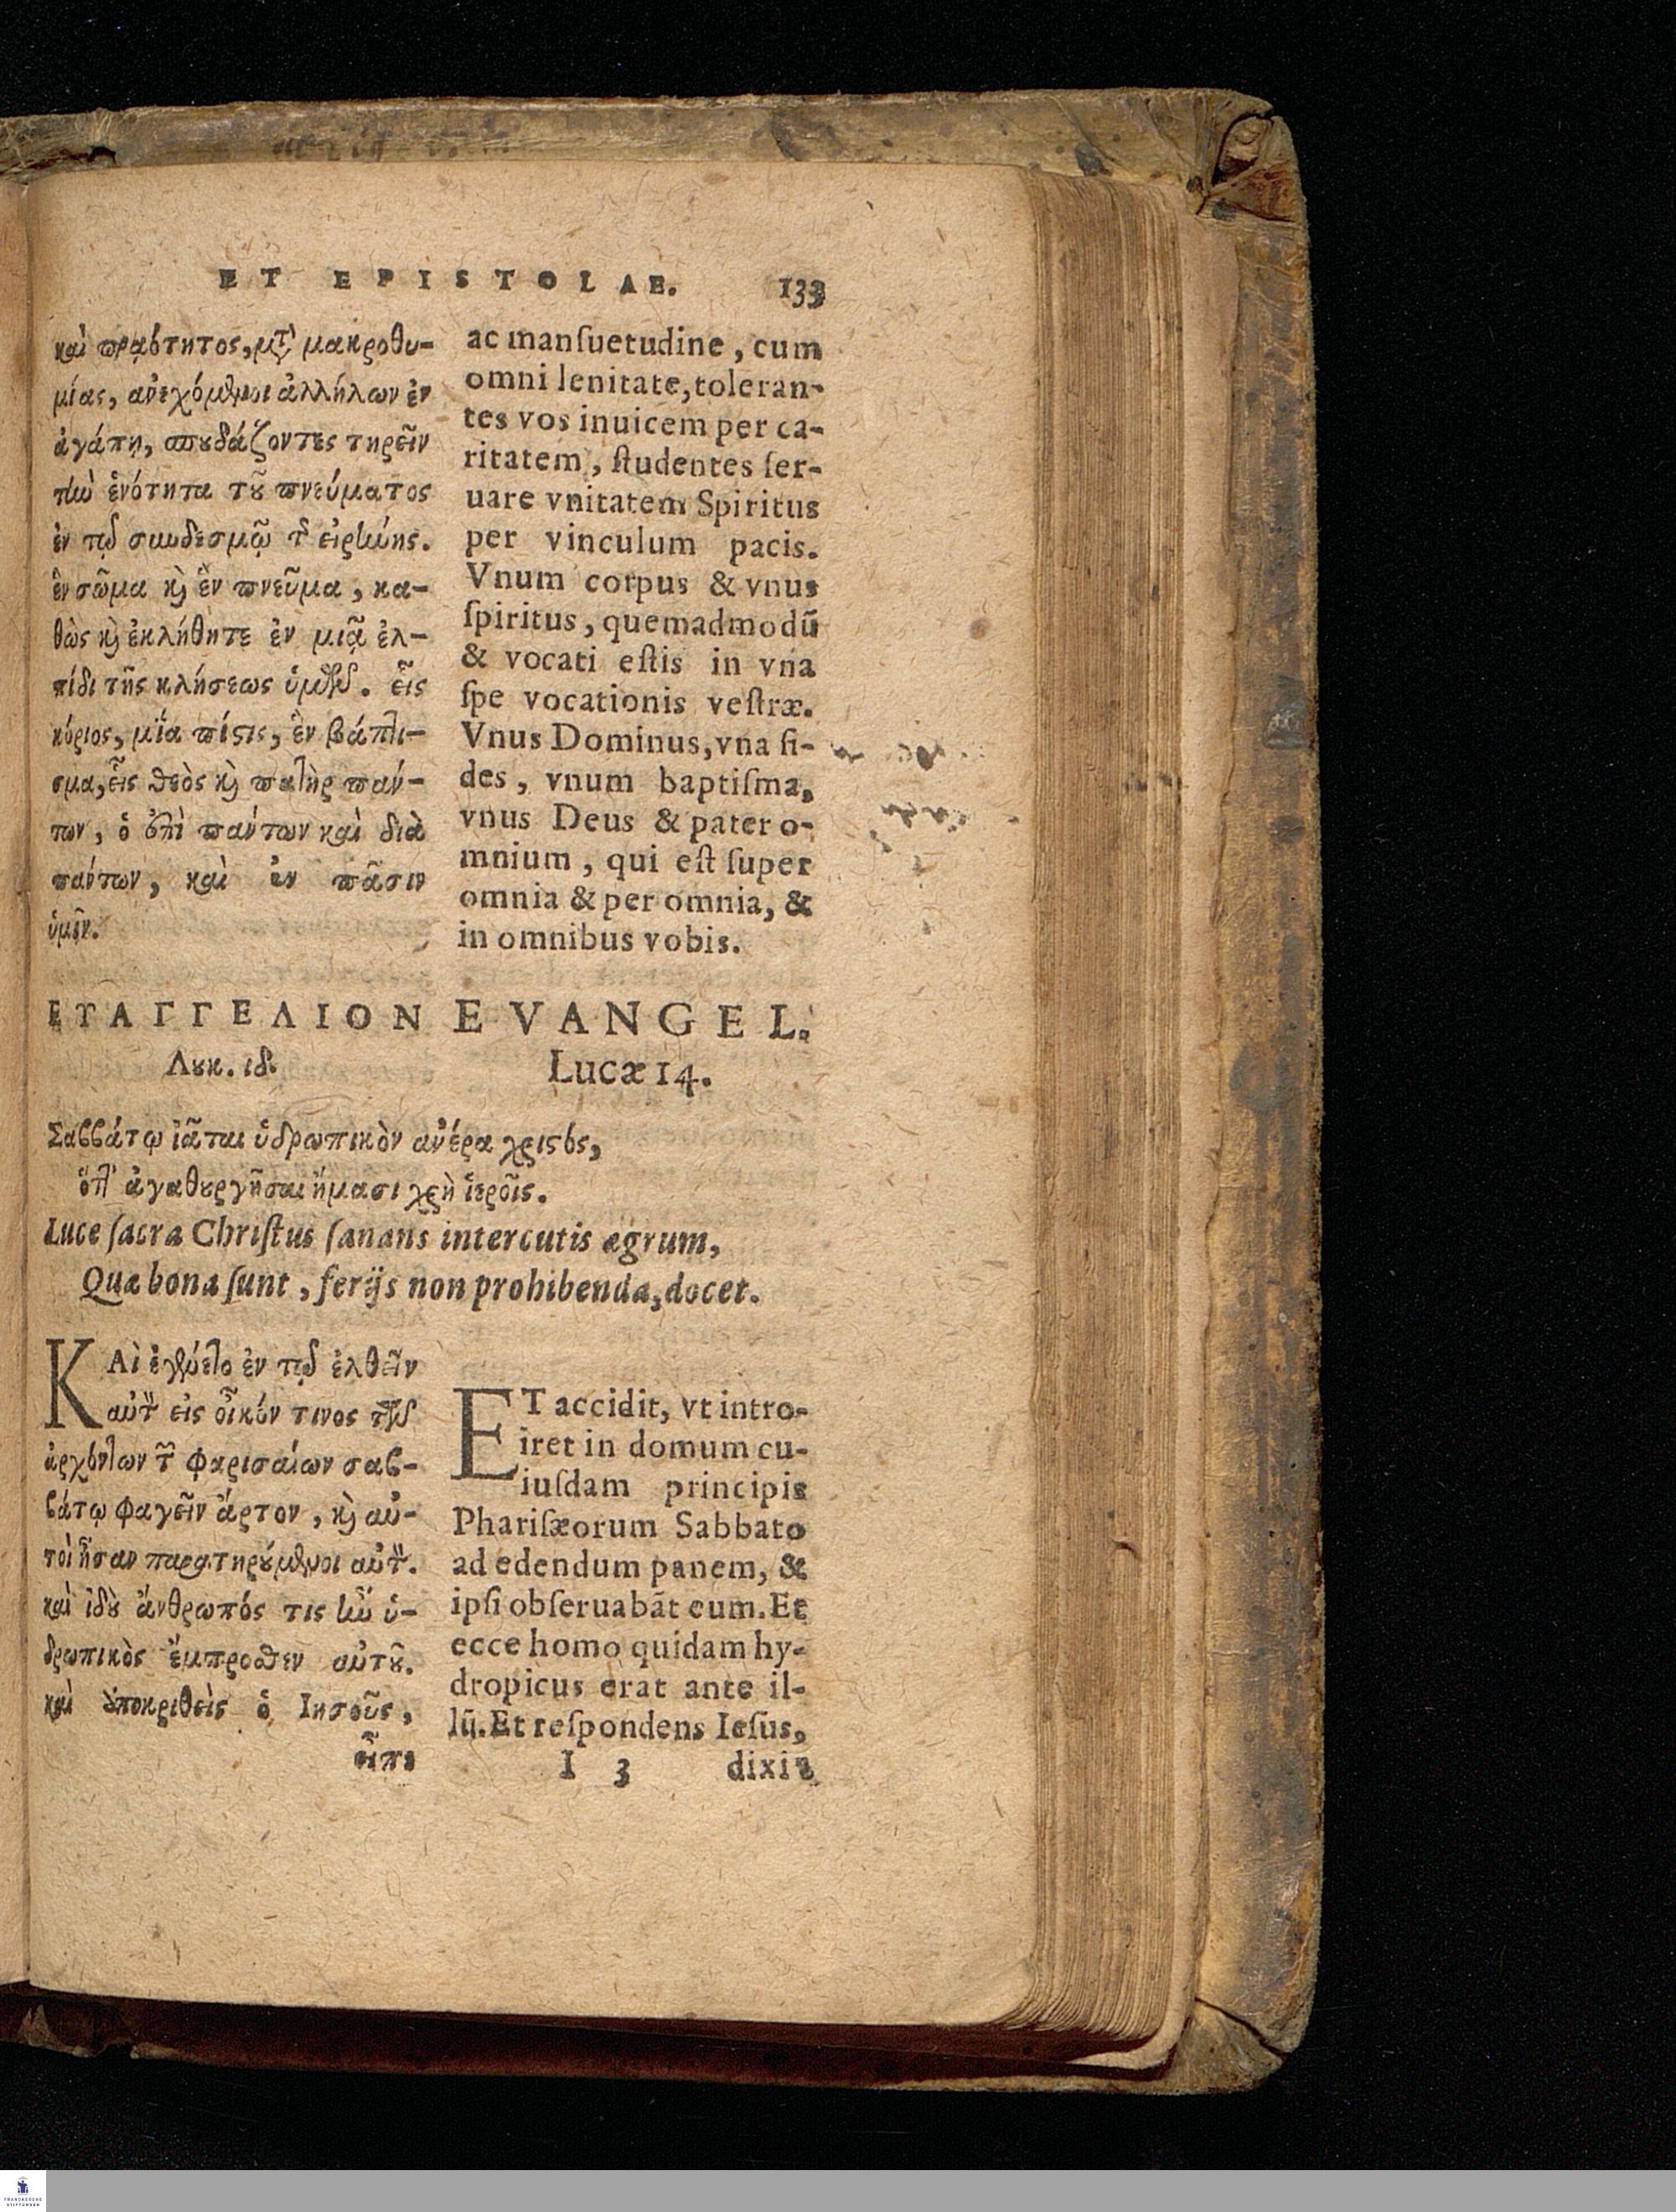 ET EPISTOLAE. 133
καὶ πραότητος, μτ' μακροθυ-
μίας, ἀνεχόμενοι ἀλλήλων ἐν
ἀγάπῃ, σπουδάζοντες τηρεῖν
τὴν ἑνότητα τοῦ πνεύματος
ἐν τῷ συνδεσμῷ τῆς εἰρήνης.
ἓν σῶμα καὶ ἓν πνεῦμα, κα-
θὼς καὶ ἐκλήθητε ἐν μιᾷ ἐλ-
πίδι τῆς κλήσεως ὑμῶν. εἷς
κύριος, μία πίστις, ἓν βάπτι-
σμα, εἷς θεὸς καὶ πατὴρ πάν-
των, ὁ ἐπὶ πάντων καὶ διὰ
πάντων, καὶ ἐν πᾶσιν
ὑμῖν.
ac manſuetudine, cum
omni lenitate, toleran-
tes vos inuicem per ca-
ritatem, ſtudentes ſer-
uare vnitatem Spiritus
per vinculum pacis.
Vnum corpus & vnus
ſpiritus, quemadmodū
& vocati eſtis in vna
ſpe vocationis veſtræ.
Vnus Dominus, vna fi-
des, vnum baptiſma,
vnus Deus & pater o-
mnium, qui eſt ſuper
omnia & per omnia, &
in omnibus vobis.
ΕΥΑΓΓΕΛΙΟΝ
Λουκ. ιδ.
EVANGEL.
Lucæ 14.
Σαββάτῳ ἰᾶται ὑδρωπικὸν ἀνέρα χριστὸς,
ὅτι ἀγαθουργῆσαι ἤμασι χρὴ ἱεροῖς.
Luce ſacra Chriſtus ſanans intercutis ægrum,
Quæ bona ſunt, ferijs non prohibenda, docet.
ΚΑὶ ἐγένετο ἐν τῷ ἐλθεῖν
αὐτὸν εἰς οἶκόν τινος τῶν
ἀρχόντων τῶν Φαρισαίων σαβ-
βάτῳ φαγεῖν ἄρτον, καὶ αὐ-
τοὶ ἦσαν παρατηρούμενοι αὐτόν.
καὶ ἰδοὺ ἄνθρωπός τις ἦν ὑ-
δρωπικὸς ἔμπροσθεν αὐτοῦ.
καὶ ἀποκριθεὶς ὁ Ιησοῦς,
εἶπε
ET accidit, vt intro-
iret in domum cu-
iuſdam principis
Phariſæorum Sabbato
ad edendum panem, &
ipſi obſeruabāt eum. Et
ecce homo quidam hy-
dropicus erat ante il-
lū. Et reſpondens Ieſus,
I 3 dixit
FRANCKESCHE
STIFTUNGEN